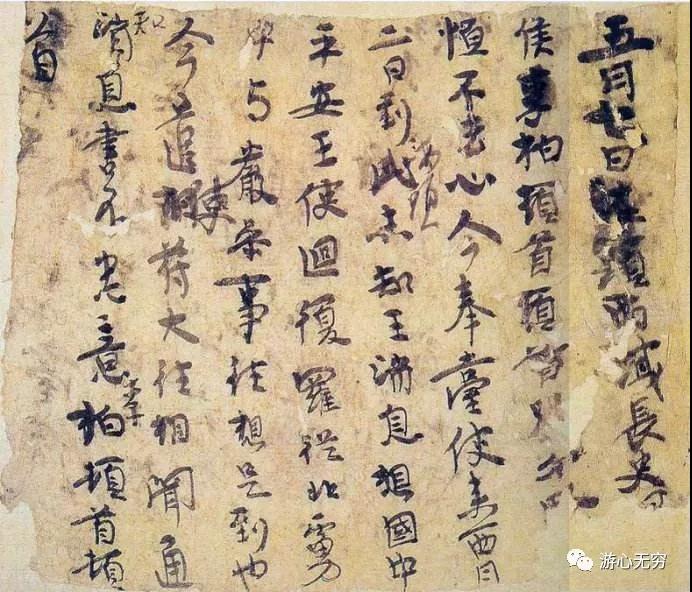 五月七日西域長史
侯李柏頓首頓首別
恒不去心今奉臺使來西月
二日到此海頭未知王消息想國中
平安王使迴復羅從北虜
中與嚴參事往想是到也
今遣使苻大往相聞通
知消息書不悉意李柏頓首頓
首
游心无穷